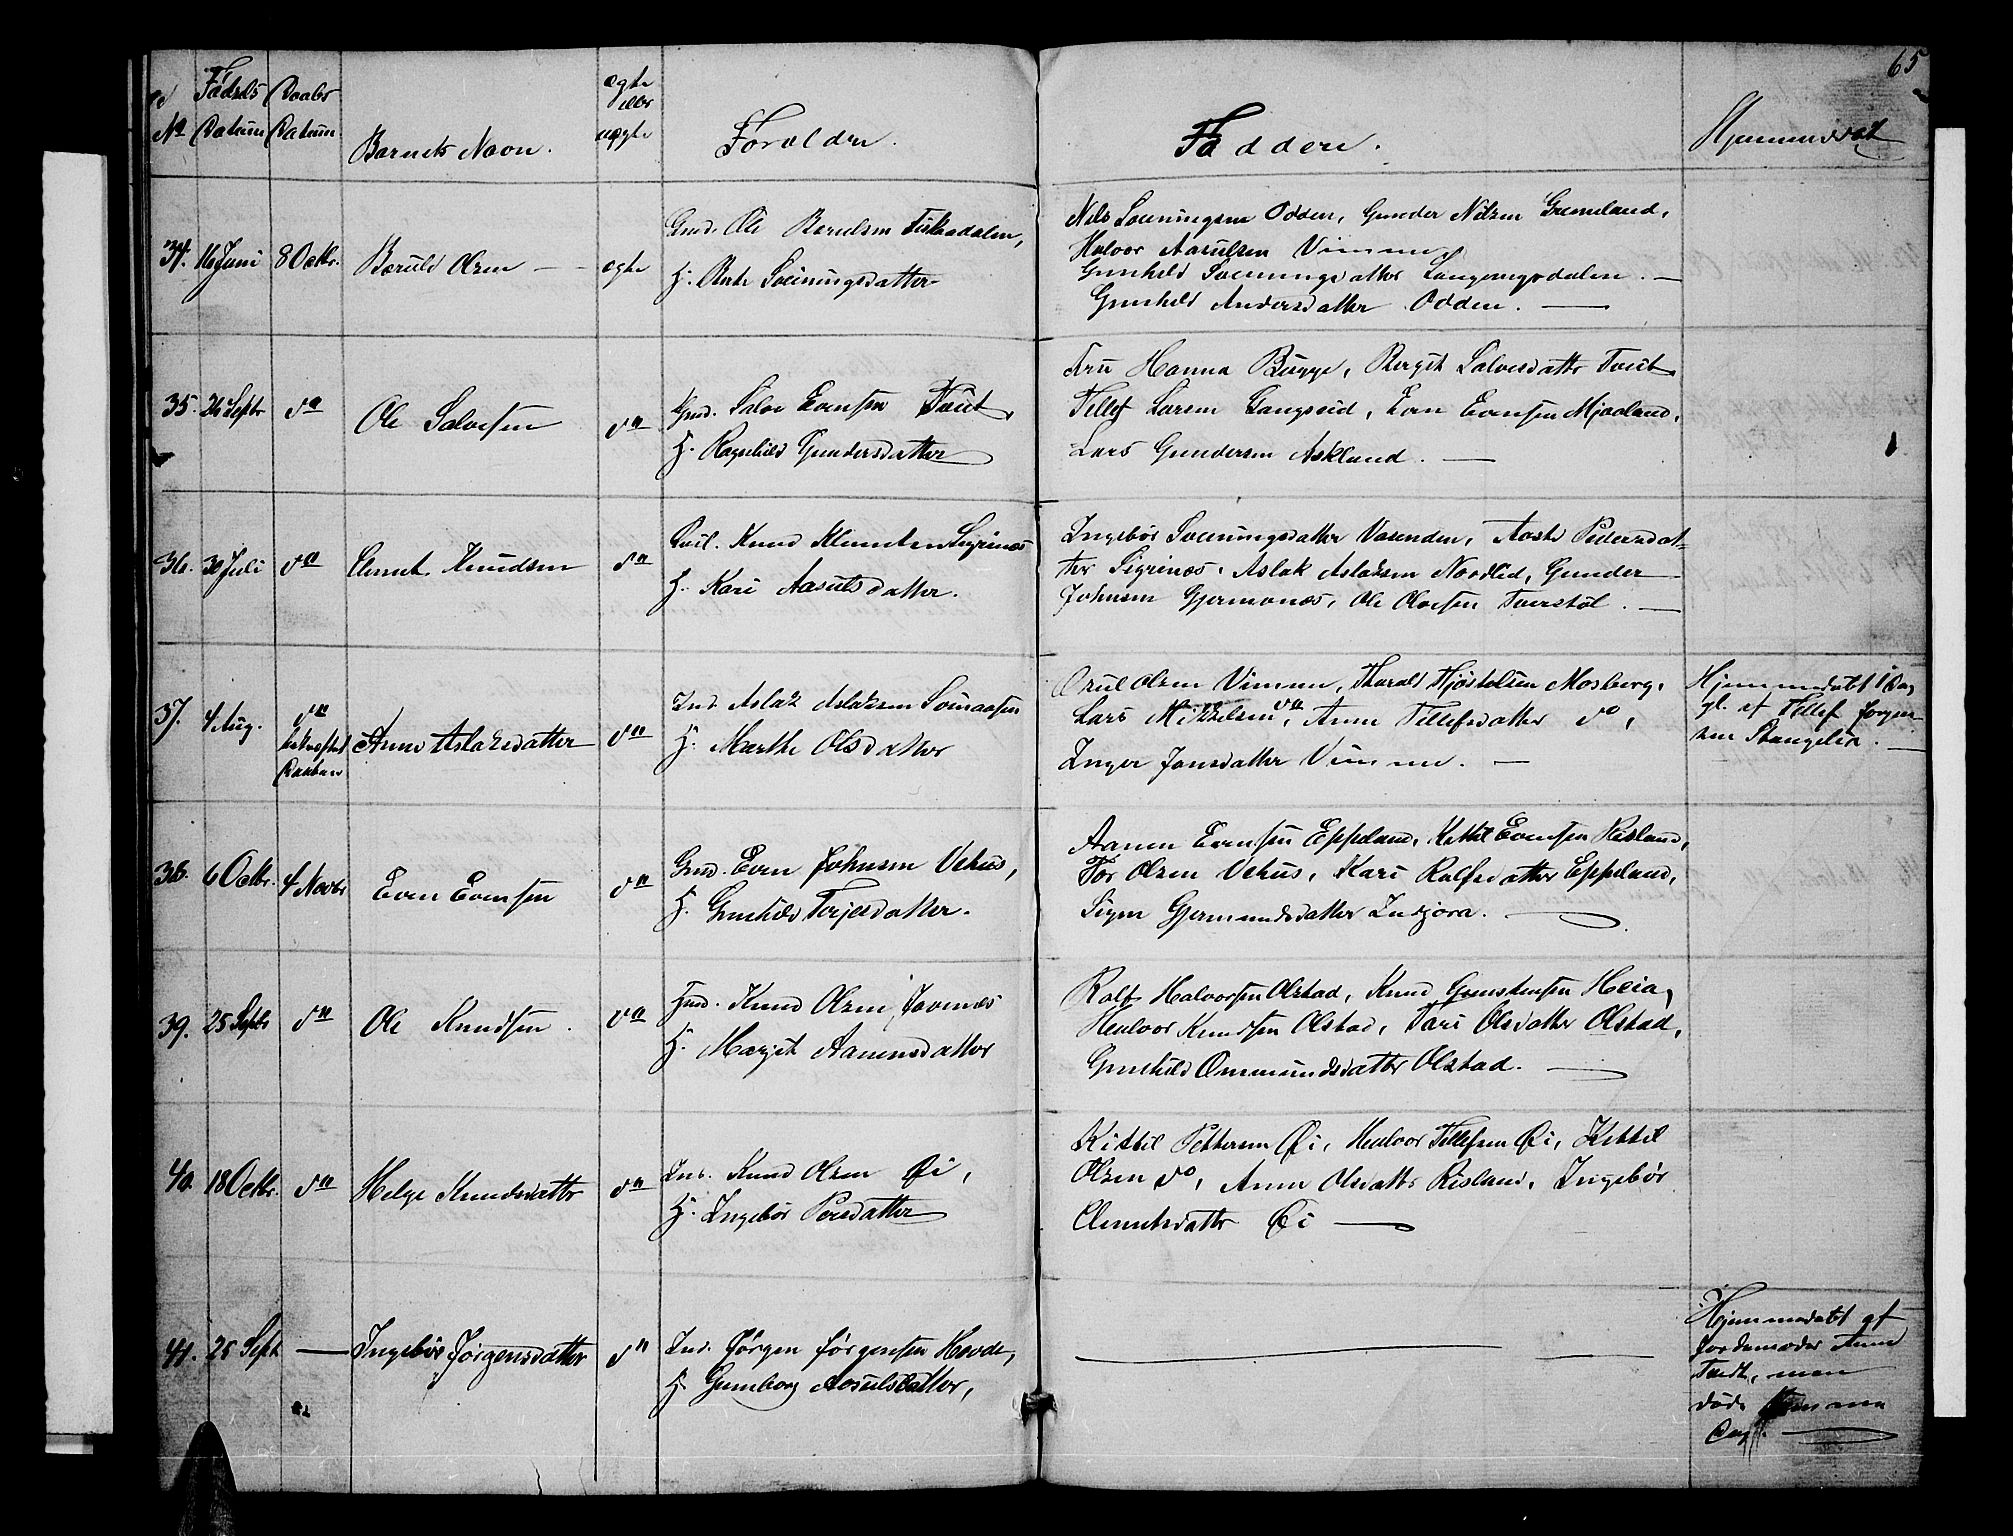 65
No Fødsels Datum
Daabs Datum
Barnets Navn.
ægte eller uægte
Forældre.
Faddere.
Hjemmedøbt
34. 16 Juni 8 Octbr. Berulf Olsen — ægte
Gmd. Ole Berulsen
H. Berte Sveinungsdatter
Nils Sveinungsen Odden, Gunder Nilsen
Halvor Aasulsen Vimme
Gunhild Sveinungsdatter Langevegsdalen. —
Gunhild Andersdatter Odden. —
35. 26 Septbr do Ole Salvesen do
Gmd. Salve Evensen Tveit,
H. Ragnhild Gundersdatter
Fru Hanna Bugge, Bergit Salvesdattr Tveit
Tellef Larsen Langeid, Even Evensen Mjaaland,
Lars Gundersen Askland. —
36. 30 Juli do Clemet Knudsen do
Knud Klemetsen Sigrinæs
H. Kari Aasulsdatter.
Ingebør Sveinungsdatter Vasenden, Aaste Pedersdat-
ter Sigrinæs, Aslak Aslaksen Nordlid, Gunder
Johnsen Gjermonæs, Ole Olvesen Tverstøl. —
37. 4 Aug. do Anne Aslaksdatter do
Ind. Aslak Aslaksen
H. Marthe Olsdatter
Olsen Vimme, Tharald Thjøstolsen Mosberg,
Lars Mikkelsen do, Anne Tellefsdatter do,
Inger Jonsdatter Vimme. —
Hjemmedøbt 1 Dag
gl. af Tellef Jørgen-
sen Stangelia. —
38. 6 Octbr. 4 Novbr Even Evensen do
Gmd. Even Johnsen Vehus,
H. Gunhild Terjesdatter.
Aanen Evensen Eppeland, Kittil Evensen Risland,
Tor Olsen Vehus, Kari Rolfsdatter Eppeland,
Signe Gjermundsdatter —
39. 25 Septbr do Ole Knudsen. do
Knud Olsen
H. Margit Aanensdatter
Rolf Halvorsen Olstad, Knud Gunstensen Heia,
Halvor Knudsen Olstad, Tari Olsdatter Olstad,
Gunhild Ommundsdatter Olstad. —
40. 18 Octbr. do Helge Knudsdattr do
Ind. Knud Olsen Øi,
H. Ingebør Persdatter
Kittil Pettersen Øi, Halvor Tellefsen Øi, Kittil
Olsen do, Anne Olsdattr Risland, Ingebør
Clemetsdattr Øi —
41. 25 Sept — Ingebør Jørgensdatter do
Ind. Jørgen Jørgensen Hovde,
H. Gunborg Aasulsdatter,
Hjemmedøbt af
Jordemoder Anne
Tveit, men
døde samme
Dag. —